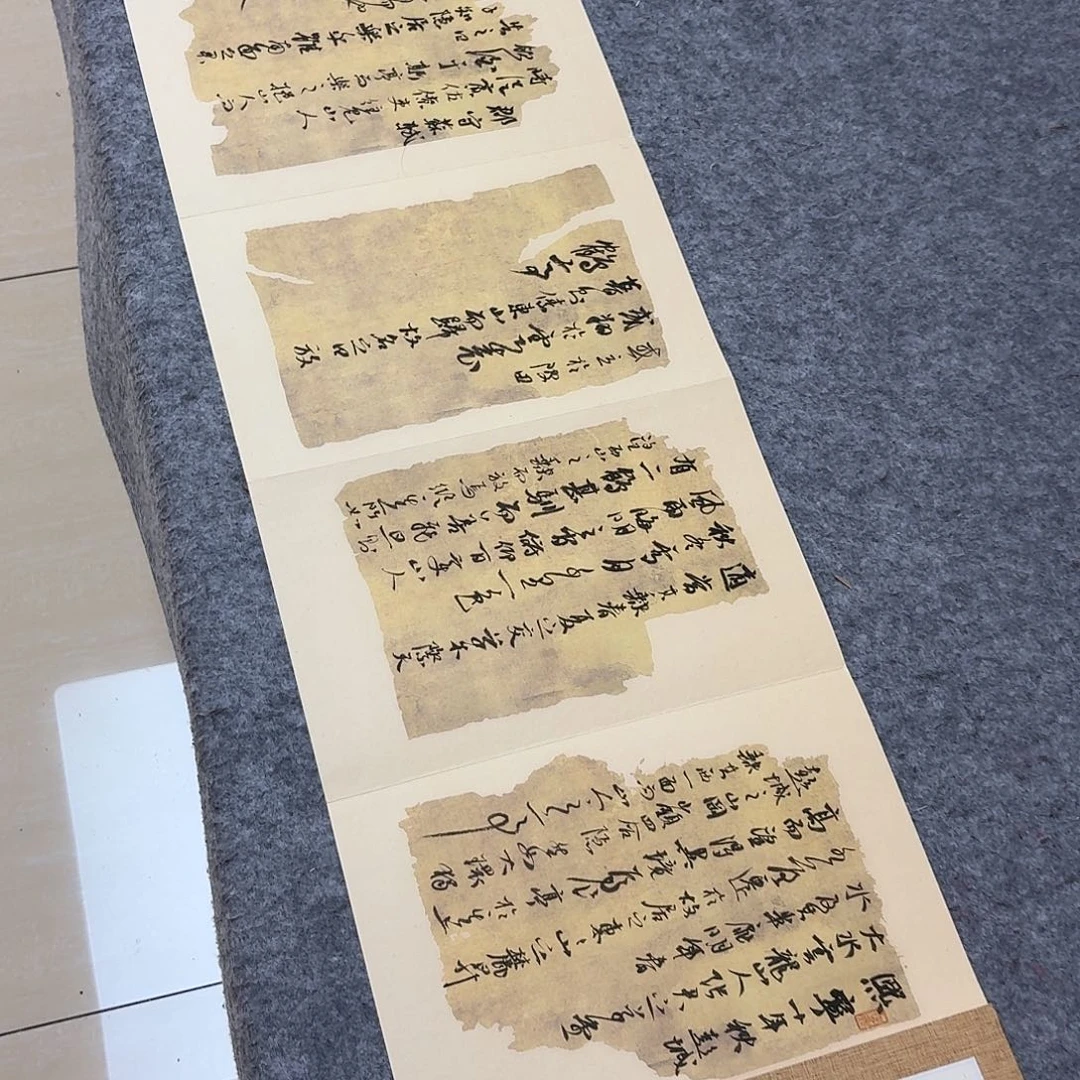 熙寧十年秋彭城
大水雲龍山人張君之草堂
水及其半扉明年春
水落遷於故居之東東山之麓昇
高而望得異境焉作亭於其上
彭城之山岡嶺四合隱然如大環獨
缺其西一面而山人之亭
適當其缺春夏之交草木際天
秋冬雪月千里一色
風雨晦明之間俯仰百變山人
有二鶴甚馴而善飛旦則
望西山之缺而放焉縱其所如
或立於陂田
或翔於雲表
暮則傃東山而歸故名之曰放
鶴亭
郡守蘇軾
時從賓佐僚吏往見山人
飲酒於斯亭而樂之挹山人而
告之曰
子知隱居之樂乎雖南面之君